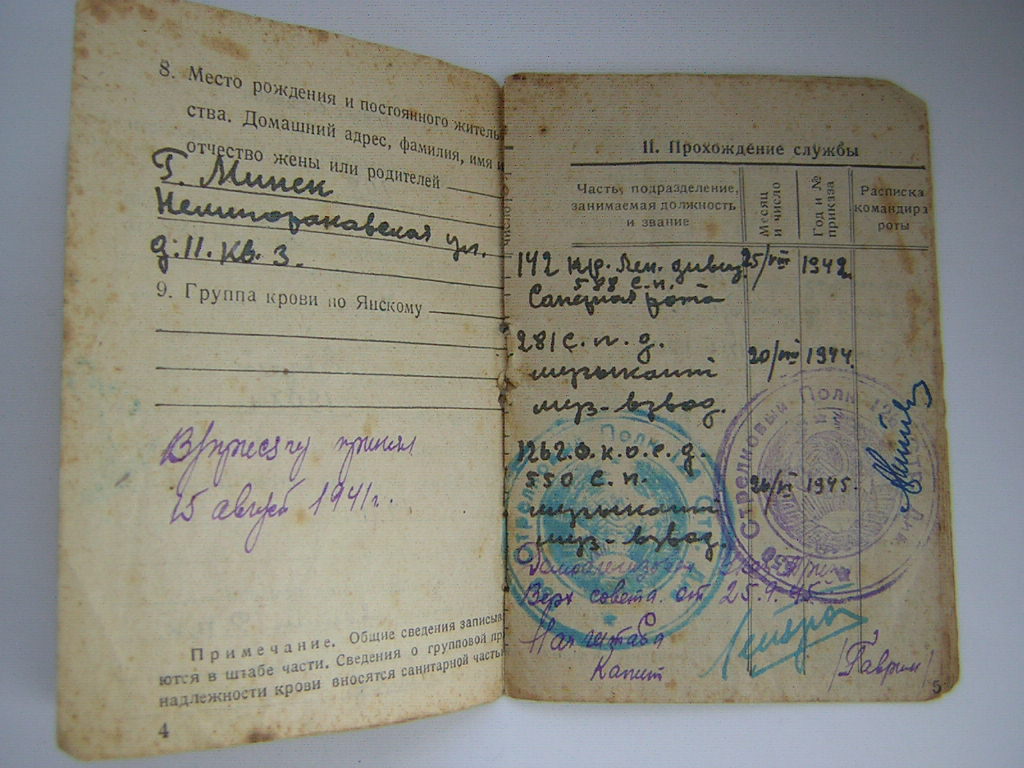 8. Место рождения и постоянного житель
ства. Домашний адрес, фамилия, имя и
отчество жены или родителей
Г. Минск
ул.
д. 11. кв. 3.
9. Группа крови по Янскому
В/присягу принял
15 август 1941 г.
Примечание. Общие сведения записыв
ются в штабе части. Сведения о групповой пр
надлежности крови вносятся санитарной часть
4
II. Прохождение службы
Часть, подразделение, занимаемая должность и звание
Месяц и число
Год и № приказа
Расписка командира роты
142 кр. Лен. дивиз. 25/VIII 1942.
588 с. п.
Саперная рота
281 с. п. д.
музыкант 20/VIII 1944.
муз-взвод.
126 о. к. о. с. д.
550 с. п. 26/VI 1945.
музыкант
муз-взвод.
Стрелковый Полк
Стрелковый Полк
550
Верх совета от 25.9.45
Нач штаба
Капит
/Гаврил/
5